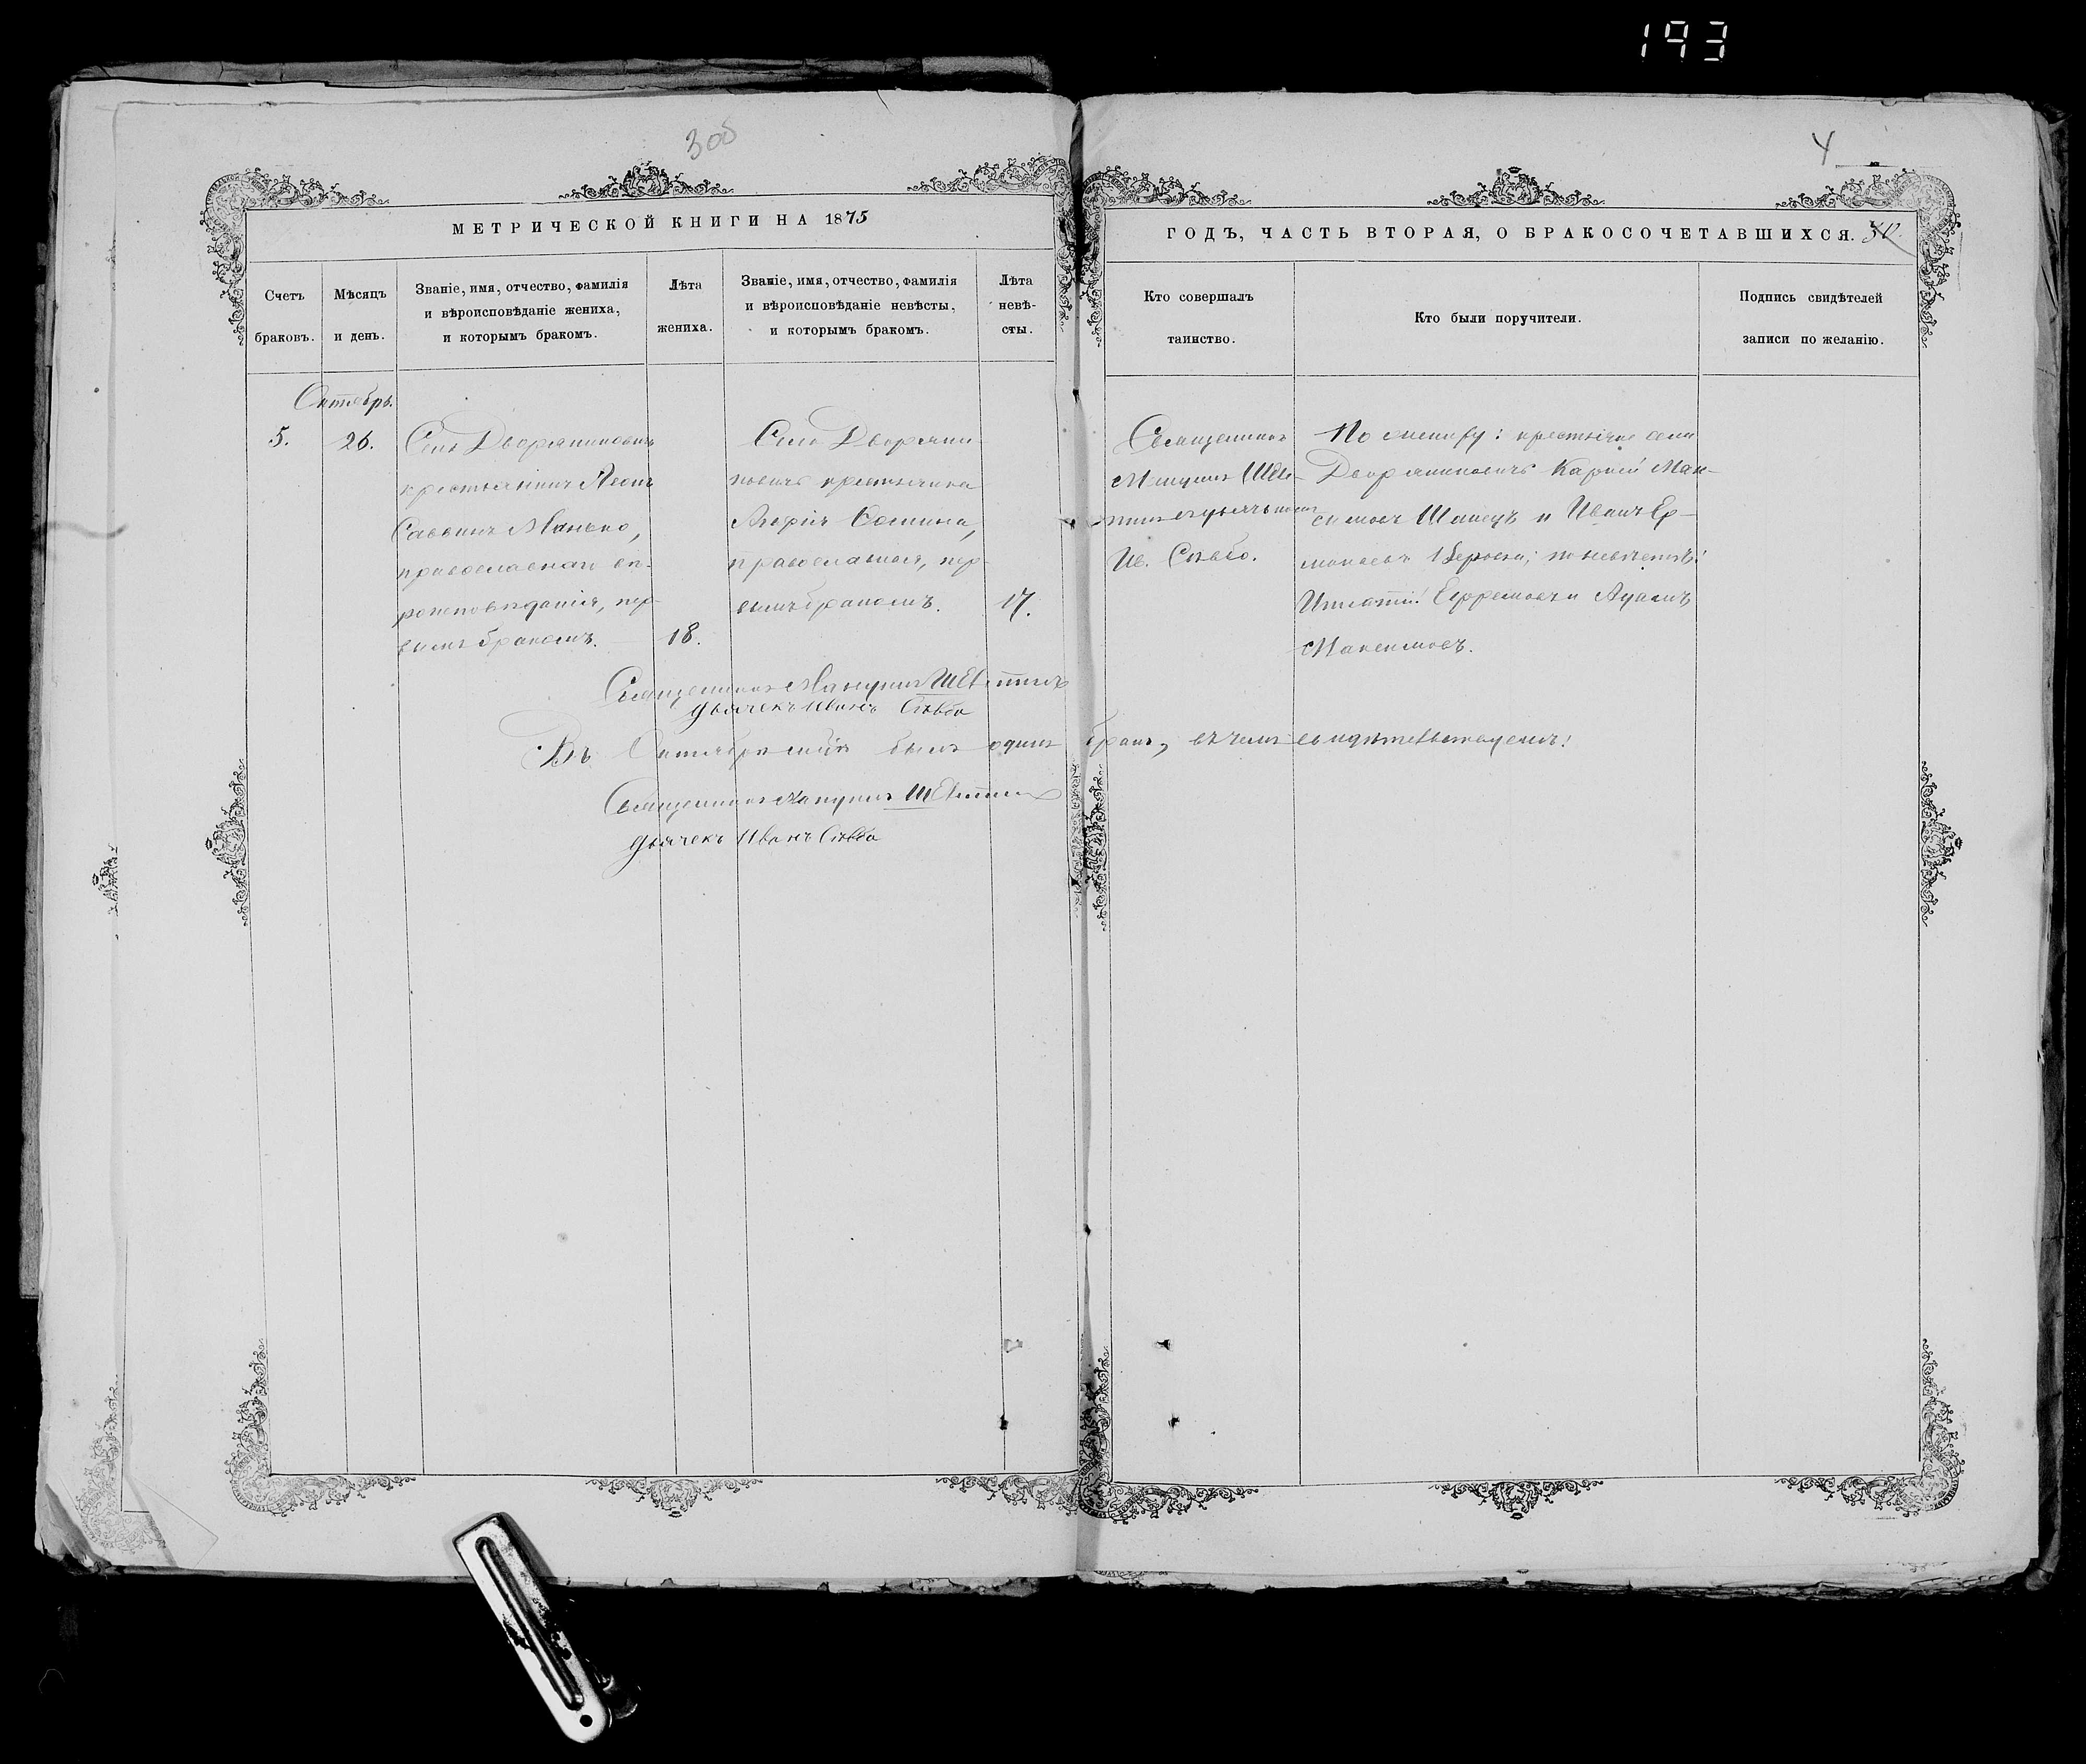 193
300
4
МЕТРИЧЕСКОЙ КНИГИ НА 1875
ГОДЪ, ЧАСТЬ ВТОРАЯ, О БРАКОСОЧЕТАВШИХСЯ.
Счетъ браковъ.
Мѣсяцъ и день.
Званіе, имя, отчество, фамилія
и вѣроисповѣданіе жениха,
и которымъ бракомъ.
Лѣта
жениха.
Званіе, имя, отчество, фамилія
и вѣроисповѣданіе невѣсты,
и которымъ бракомъ.
Лѣта
невѣ-
сты.
Кто совершалъ
таинство.
Кто были поручители.
Подпись свидѣтелей
записи по желанію.
Октябрь.
5.
26.
Села Дворяниновичъ
крестьянинъ Леонъ
Саввинъ Манько,
православнаго вѣ-
роисповѣданія, пер-
вымъ бракомъ.
18.
Села Дворяни-
новичъ крестьянка
Фомина,
православная, пер-
вымъ бракомъ.
17.
Священникъ
съ дьячкомъ
Ив.
По жениху: крестьяне села
Дворяниновичъ Карпъ Мак-
симовъ и Иванъ Ер-
молаевъ по невѣстѣ:
Игнатій Ефремовъ и Адамъ
Максимовъ.
Священникъ
дьячекъ Иванъ
Въ Октябрѣ мѣсяцѣ былъ одинъ бракъ, въ чемъ свидѣтельствуемъ:
Священникъ
дьячекъ Иванъ